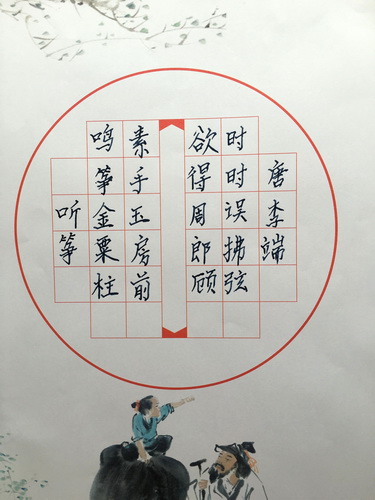 听筝
鸣筝金粟柱
素手玉房前
欲得周郎顾
时时误拂弦
唐李端